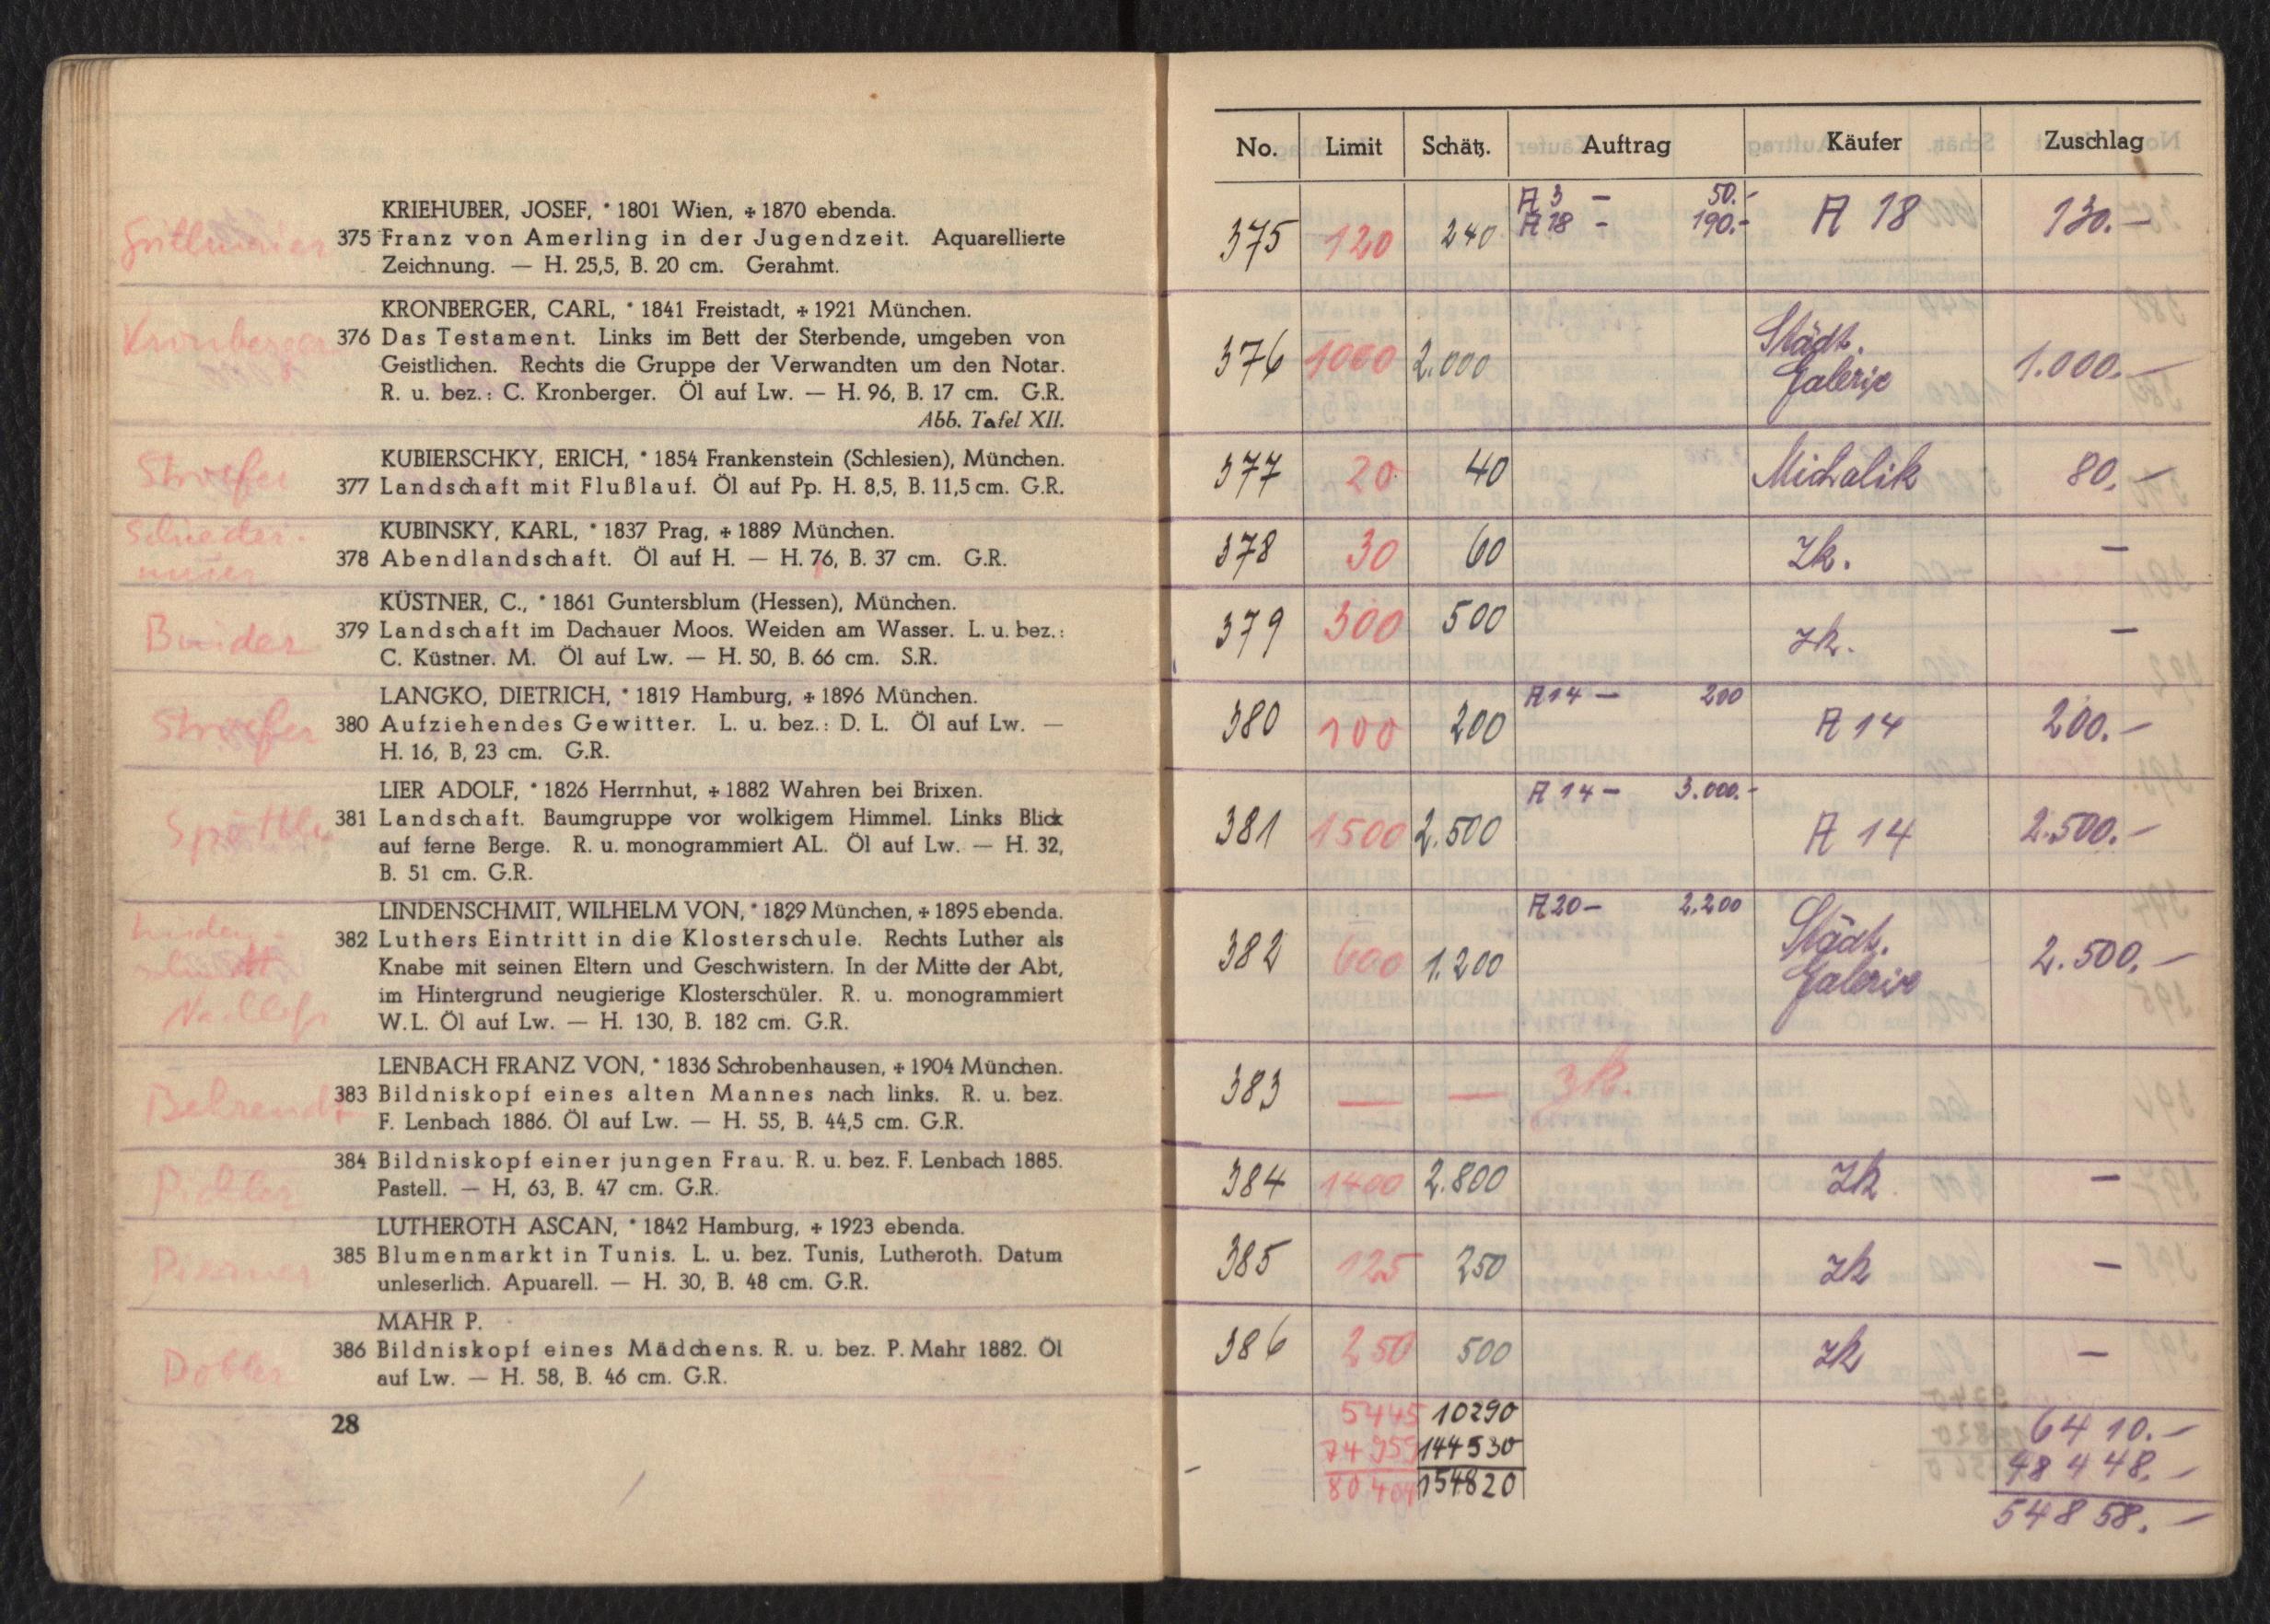 KRIEHUBER, JOSEF, * 1801 Wien, + 1870 ebenda.
375 Franz von Amerling in der Jugendzeit. Aquarellierte
Zeichnung. — H. 25,5, B. 20 cm. Gerahmt.
Kronberger
KRONBERGER, CARL, * 1841 Freistadt, + 1921 München.
376 Das Testament. Links im Bett der Sterbende, umgeben von
Geistlichen. Rechts die Gruppe der Verwandten um den Notar.
R. u. bez.: C. Kronberger. Öl auf Lw. — H. 96, B. 17 cm. G.R.
Abb. Tafel XII.
Stroefer
KUBIERSCHKY, ERICH, * 1854 Frankenstein (Schlesien), München.
377 Landschaft mit Flußlauf. Öl auf Pp. H. 8,5, B. 11,5 cm. G.R.
KUBINSKY, KARL, * 1837 Prag, + 1889 München.
378 Abendlandschaft. Öl auf H. — H. 76, B. 37 cm. G.R.
KÜSTNER, C., * 1861 Guntersblum (Hessen), München.
379 Landschaft im Dachauer Moos. Weiden am Wasser. L. u. bez.:
C. Küstner. M. Öl auf Lw. — H. 50, B. 66 cm. S.R.
Stroefer
LANGKO, DIETRICH, * 1819 Hamburg, + 1896 München.
380 Aufziehendes Gewitter. L. u. bez.: D. L. Öl auf Lw. —
H. 16, B, 23 cm. G.R.
LIER ADOLF, * 1826 Herrnhut, + 1882 Wahren bei Brixen.
381 Landschaft. Baumgruppe vor wolkigem Himmel. Links Blick
auf ferne Berge. R. u. monogrammiert AL. Öl auf Lw. — H. 32,
B. 51 cm. G.R.
LINDENSCHMIT, WILHELM VON, * 1829 München, + 1895 ebenda.
382 Luthers Eintritt in die Klosterschule. Rechts Luther als
Knabe mit seinen Eltern und Geschwistern. In der Mitte der Abt,
im Hintergrund neugierige Klosterschüler. R. u. monogrammiert
W. L. Öl auf Lw. — H. 130, B. 182 cm. G.R.
LENBACH FRANZ VON, * 1836 Schrobenhausen, + 1904 München.
Behrendt
383 Bildniskopf eines alten Mannes nach links. R. u. bez.
F. Lenbach 1886. Öl auf Lw. — H. 55, B. 44,5 cm. G.R.
384 Bildniskopf einer jungen Frau. R. u. bez. F. Lenbach 1885.
Pichler
Pastell. — H, 63, B. 47 cm. G.R.
LUTHEROTH ASCAN, * 1842 Hamburg, + 1923 ebenda.
385 Blumenmarkt in Tunis. L. u. bez. Tunis, Lutheroth. Datum
unleserlich. Apuarell. — H. 30, B. 48 cm. G.R.
MAHR P.
386 Bildniskopf eines Mädchens. R. u. bez. P. Mahr 1882. Öl
Dobler
auf Lw. — H. 58, B. 46 cm. G.R.
28
No. Limit Schätz. Auftrag Käufer Zuschlag
A 3 — 50.-
375 120 240 A 18 - 190.- A 18 130.—
376 1000 2.000 Städt. Galerie 1.000.—
377 20 40 Michalik 80.—
378 30 60 Zk. —
379 300 500 Zk. —
A 14 — 200
380 100 200 A 14 200.—
A 14 — 3.000.-
381 1500 2.500 A 14 2.500.—
A 20 — 2.200
382 600 1.200 Städt. Galerie 2.500.—
383 — — Zk.
384 1400 2.800 Zk —
385 125 250 Zk —
386 250 500 Zk —
5445 10290 6410.—
74959 144530 48448.—
80404 154820 54858.—